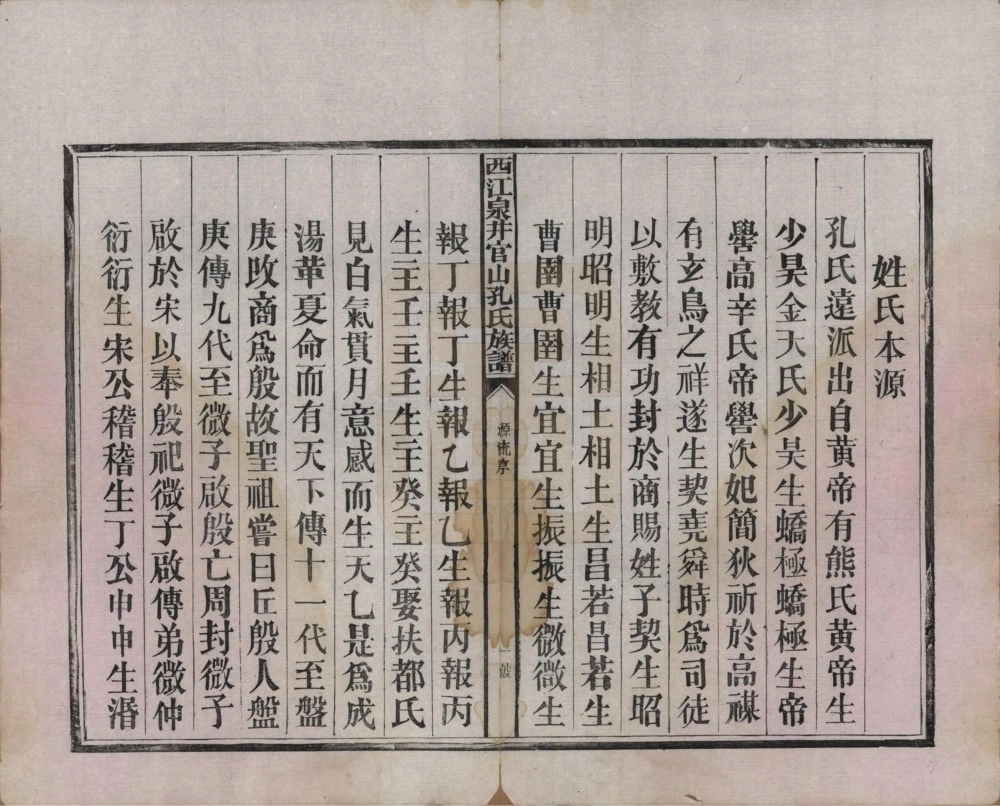 姓氏本源
孔氏遠派出自黃帝有熊氏黃帝生
少昊金天氏少昊生蟜極蟜極生帝
嚳高辛氏帝嚳次妃簡狄祈於高禖
有玄鳥之祥遂生契堯舜時爲司徒
以敷教有功封於商賜姓子契生昭
明昭明生相土相土生昌若昌若生
曹圉曹圉生宜宜生振振生微微生
西江泉井官山孔氏族譜
源流序
報丁報丁生報乙報乙生報丙報丙
生主壬主壬生主癸主癸娶扶都氏
見白氣貫月意感而生天乙是爲成
湯革夏命而有天下傳十一代至盤
庚改商爲殷故聖祖嘗曰丘殷人盤
庚傳九代至微子啟殷亡周封微子
啟於宋以奉殷祀微子啟傳弟微仲
衍衍生宋公稽稽生丁公申申生湣